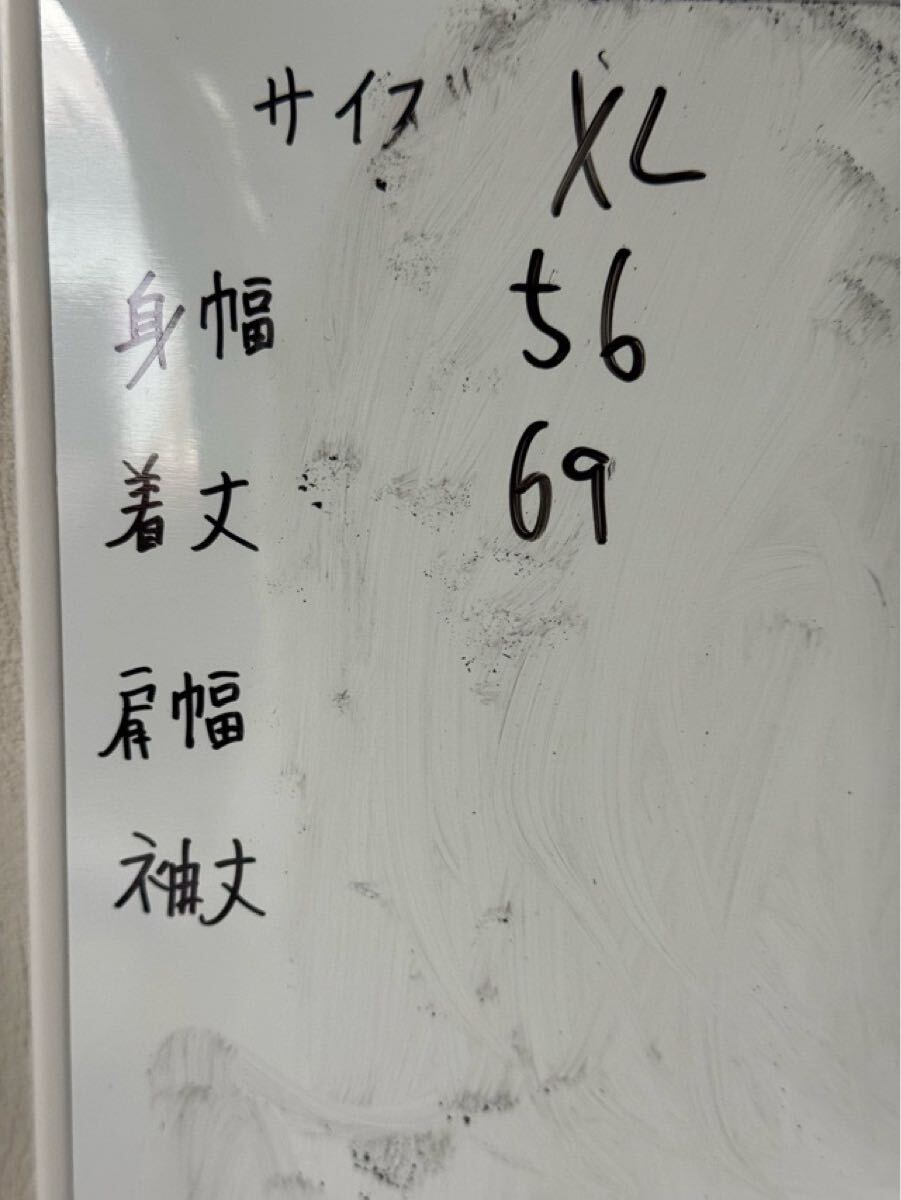 サイズ XL
身幅 56
着丈 69
肩幅
袖丈